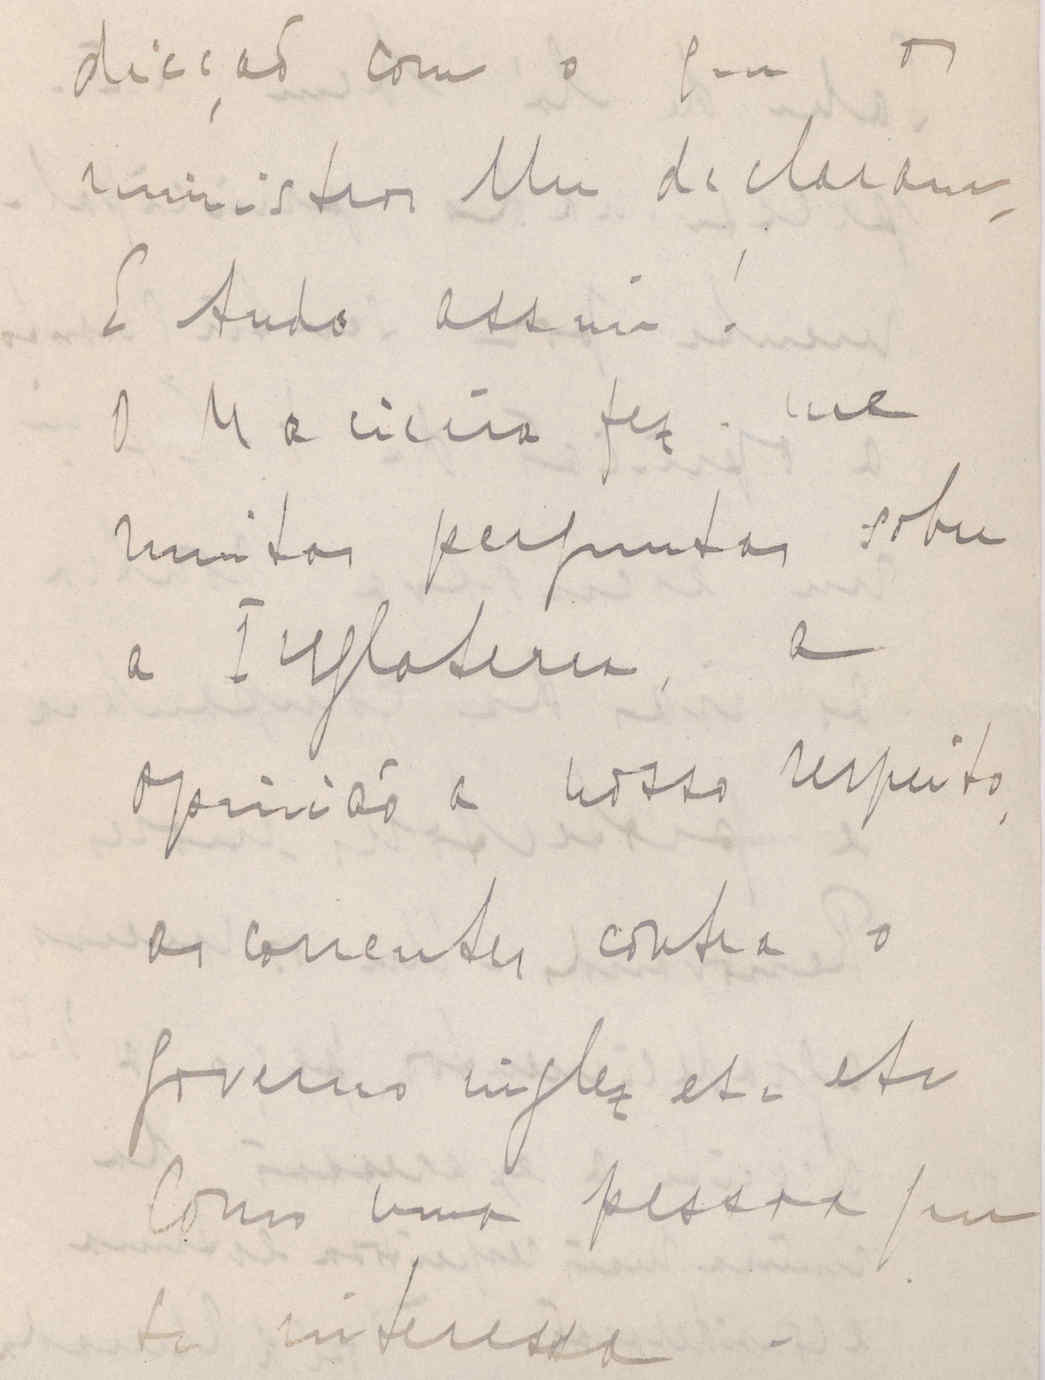 dicção com o que os
ministros lhe declaram,
E tudo assim!
O Macieira fez-me
muitas perguntas sobre
a Inglaterra, a
opinião a nosso respeito,
as correntes contra o
governo inglez etc etc
Como uma pessoa que
se interessa.